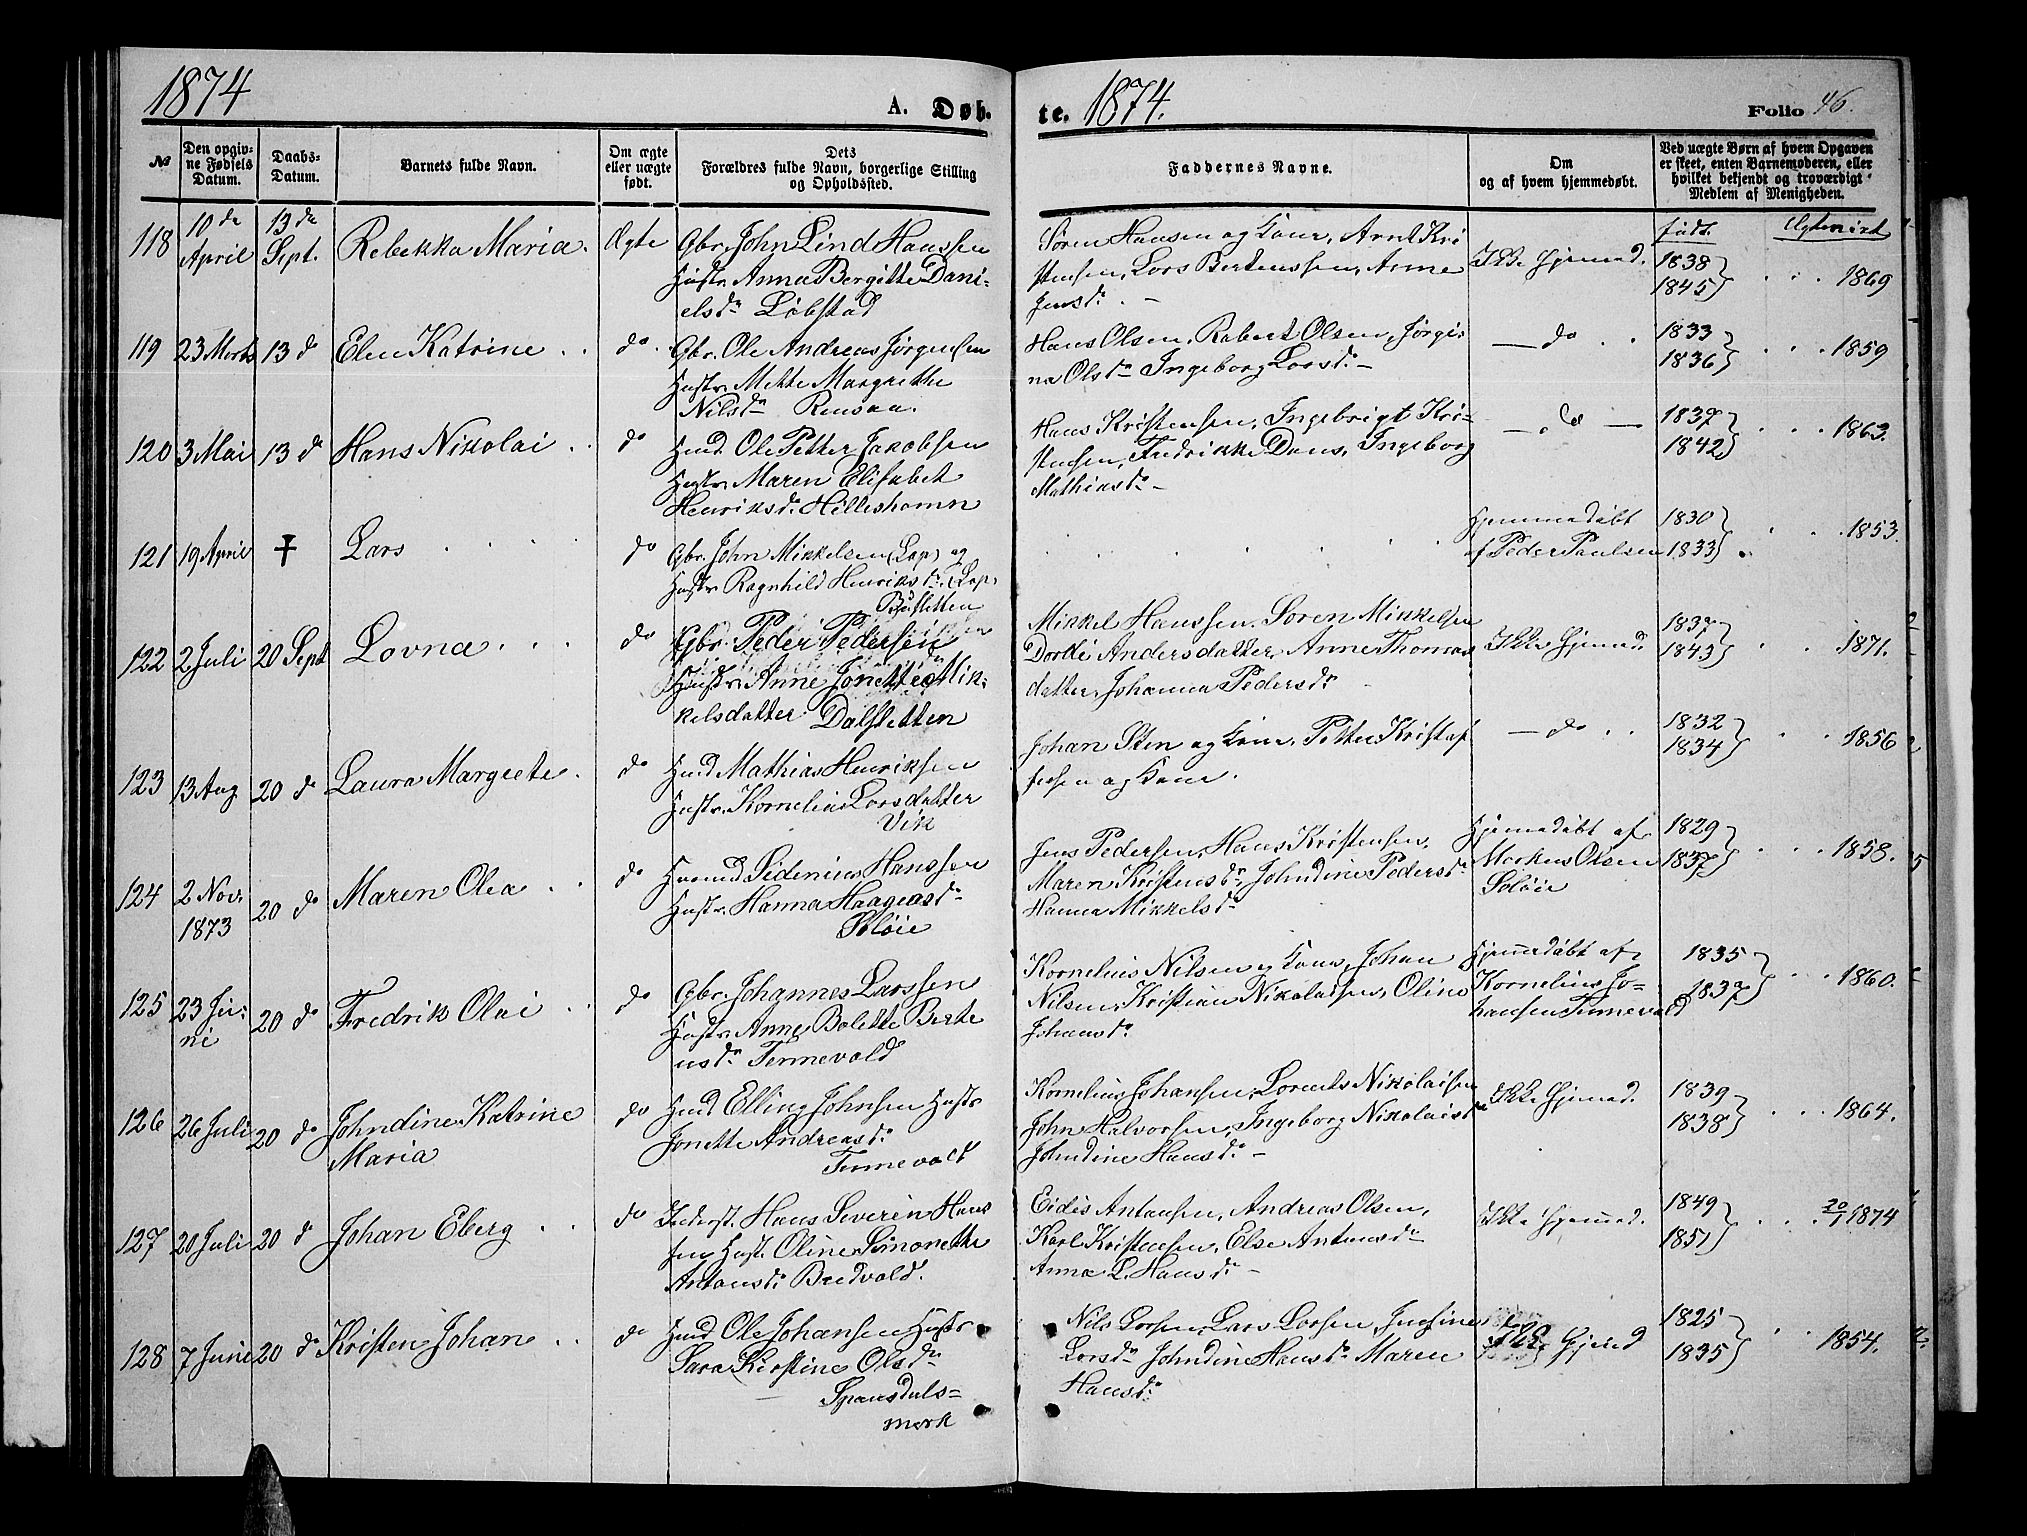 1874
A. Døb-
te. 1874.
Folio 46.
№
Den opgiv-
ne Fødsels
Datum.
Daabs-
Datum.
Barnets fulde Navn.
Om ægte
eller uægte
født.
Dets
Forældres fulde Navn, borgerlige Stilling
og Opholdssted.
Faddernes Navne.
Om
og af hvem hjemmedøbt.
Ved uægte Børn af hvem Opgaven
er skeet, enten Barnemoderen, eller
hvilket bekjendt og troværdigt
Medlem af Menigheden.
født. Ægteviet
118 10de April 13de Sept. Rebekka Maria. Ægte
Gbr. John Lind Hanssen
Hustr. Anna Bergitte Dani-
elsdr Løbstad
Søren Hansen og Kone, Arnt Kri
stensen, Lars Bertenssen, Anne
Jensdr. -
Ikke hjemmed.
1838
1845 } 1869
119 23 Marts 13 d Elen Katrine do.
Gbr. Ole Andreas Jørgensen
Hustr. Mette Margrethe
Nilsdr Rensaa.
Hans Olsen, Robert Olsen, Jørgi-
na Olsdr Ingeborg Larsdr. -
- do
1833
1836 } 1859
120 3 Mai 13 d Hans Nikolai do
Hmd Ole Petter Jakobsen
Hustr. Maren Elisabet
Henriksdr. Helleshamn
Hans Kristensen, Ingebrigt Kri-
stensen, Fredrikke Dans, Ingeborg
Mathiasdr. -
- do -
1837
1842 } 1863.
121 19 April † Lars do
Gbr. John Mikkelsen (Lap) og
Hustr. Ragnhild Henriksdr. (Lap)
Hjemmedøbt
af Peder Paulsen
1830
1833 } 1853.
122 2 Juli 20 Sept Lovna do
Gbr. Peder Pedersen
Hustr. Anne Jonette Mik-
kelsdatter Dalsletten
Mikkel Hanssen, Søren Mikkelsen
Dorde Andersdatter, Anne Thomas
datter, Johanna Pedersdr
Ikke hjemmed
1837
1843 } 1871.
123 13 Aug 20 do Laura Margrete. do
Hmd Mathias Henriksen
Hustr. Kornelia Larsdatter
Vik
Johan Sten og Kone, Petter Kristof
fersen og Kone.
- do
1832
1834 } 1856
124 2 Nov. 1873 20 do Maren Olea do
Huusmd Sidenius Hanssen
Hustr. Hanna Haagensdr
Soløie
Jens Pedersen, Hans Kristensen,
Maren Kristensdr, Johndine Pedersdr
Hanna Mikkelsdr
Hjemmedøbt af
Markus Olsen
Soløie
1829
1837 } 1858.
125 23 Ju-
ni 20 do Fredrik Olai do
Gbr. Johannes Larssen
Hustr. Anne Bolette Berte
usdr Tennevold
Kornelius Nilsen og Kone, Johan
Nilsen, Kristian Nikolaisen, Oline
Johansdr
Hjemmedøbt af
Kornelius Jo-
hansen Tennevold
1835
1837 } 1860.
126 26 Juli 20 do Johndine Katrine
Maria do
Hmd Elling Johnsen Hustr
Jonette Andreasdr.
Tennevold
Kornelius Johansen, Lorents Nikolaisen
John Halvorsen, Ingeborg Nikolaisdr
Johndine Hansdr. -
Ikke hjemmed.
1839
1838 } 1864.
127 20 Juli 20 d Johan Eberg do
Inderst. Hans Severin Hans
sen Hust. Oline Simonette
Antonsdr Brudvold.
Eidis Antonsen, Andreas Olsen,
Karl Kristensen, Else Antonsdr
Anna L. Hansdr. -
Ikke hjemmed.
1849
1851 } 20/1 1874
128 7 Juni 20 do Kristen Johan do
Hmd Ole Johansen Hustr.
Sara Kirstine Olsdr
Spansdals-
mark
Nils Larsen, Lars Larsen, Jensine
Larsdr Johndine Hansdr Maren
Hansdr.
Ikke hjemd
1825
1835 } 1854.